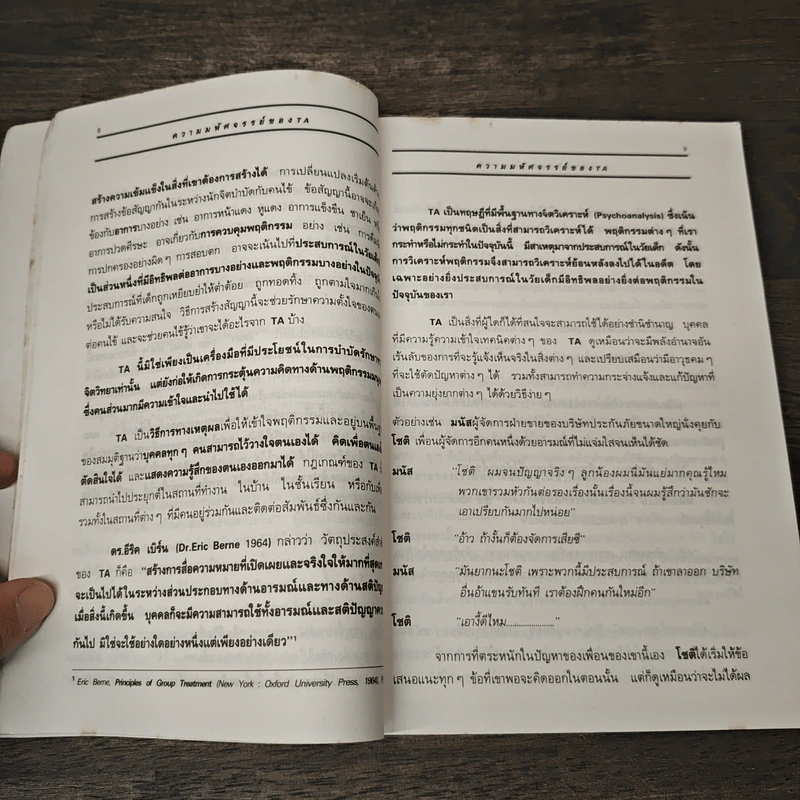 8
ความมหัศจรรย์ของTA
สร้างความเข้มแข็งในสิ่งที่เขาต้องการสร้างได้ การเปลี่ยนแปลงเริ่มต้นด้วย
การสร้างข้อสัญญากันในระหว่างนักจิตบำบัดกับคนไข้ ข้อสัญญานี้อาจจะ
ข้องกับอาการบางอย่าง เช่น อาการหน้าแดง หูแดง อาการแข็งขืน ชาเย็น
อาการปวดศีรษะ อาจเกี่ยวกับการควบคุมพฤติกรรม อย่าง เช่น การดื่ม
การปกครองอย่างผิด ๆ การสอบตก อาจจะเน้นไปที่ประสบการณ์ในวัยเด็ก
เป็นส่วนหนึ่งที่มีอิทธิพลต่ออาการบางอย่างและพฤติกรรมบางอย่างในปัจจุบัน
ประสบการณ์ที่เด็กถูกเหยียบย่ำให้ต่ำต้อย ถูกทอดทิ้ง ถูกตามใจมากเกินไป
หรือไม่ได้รับความสนใจ วิธีการสร้างสัญญานี้จะช่วยรักษาความตั้งใจของคน
ต่อคนไข้ และจะช่วยคนไข้รู้ว่าเขาจะได้อะไรจาก TA บ้าง
TA นี้มิใช่เพียงเป็นเครื่องมือที่มีประโยชน์ในการบำบัดรักษา
จิตวิทยาเท่านั้น แต่ยังก่อให้เกิดการกระตุ้นความคิดทางด้านพฤติกรรม
ซึ่งคนส่วนมากมีความเข้าใจและนำไปใช้ได้
TA เป็นวิธีการทางเหตุผลเพื่อให้เข้าใจพฤติกรรมและอยู่บนพื้นฐาน
ของสมมุติฐานว่าบุคคลทุก ๆ คนสามารถไว้วางใจตนเองได้ คิดเพื่อตนเอง
ตัดสินใจได้ และแสดงความรู้สึกของตนเองออกมาได้ กฎเกณฑ์ของ TA
สามารถนำไปประยุกต์ในสถานที่ทำงาน ในบ้าน ในชั้นเรียน หรือกับ
รวมทั้งในสถานที่ต่าง ๆ ที่มีคนอยู่ร่วมกันและติดต่อสัมพันธ์ซึ่งกันและกัน
ดร.อีริค เบิร์น (Dr.Eric Berne 1964) กล่าวว่า วัตถุประสงค์
ของ TA ก็คือ "สร้างการสื่อความหมายที่เปิดเผยและจริงใจให้มากที่สุด
จะเป็นไปได้ในระหว่างส่วนประกอบทางด้านอารมณ์และทางด้านสติปัญญา
เมื่อสิ่งนี้เกิดขึ้น บุคคลก็จะมีความสามารถใช้ทั้งอารมณ์และสติปัญญา
กันไป มิใช่จะใช้อย่างใดอย่างหนึ่งแต่เพียงอย่างเดียว"¹
¹ Eric Berne, Principles of Group Treatment (New York : Oxford University Press, 1964),
9
ความมหัศจรรย์ของTA
TA เป็นทฤษฎีที่มีพื้นฐานทางจิตวิเคราะห์ (Psychoanalysis) ซึ่งเน้น
ว่าพฤติกรรมทุกชนิดเป็นสิ่งที่สามารถวิเคราะห์ได้ พฤติกรรมต่าง ๆ ที่เรา
กระทำหรือไม่กระทำในปัจจุบันนี้ มีสาเหตุมาจากประสบการณ์ในวัยเด็ก ดังนั้น
การวิเคราะห์พฤติกรรมจึงสามารถวิเคราะห์ย้อนหลังลงไปได้ในอดีต โดย
เฉพาะอย่างยิ่งประสบการณ์ในวัยเด็กมีอิทธิพลอย่างยิ่งต่อพฤติกรรมใน
ปัจจุบันของเรา
TA เป็นสิ่งที่ผู้ใดก็ได้ที่สนใจจะสามารถใช้ได้อย่างชำนิชำนาญ บุคคล
ที่มีความรู้ความเข้าใจเทคนิคต่าง ๆ ของ TA ดูเหมือนว่าจะมีพลังอำนาจอัน
เร้นลับของการที่จะรู้แจ้งเห็นจริงในสิ่งต่าง ๆ และเปรียบเสมือนว่ามีอาวุธคม ๆ
ที่จะใช้ตัดปัญหาต่าง ๆ ได้ รวมทั้งสามารถทำความกระจ่างแจ้งและแก้ปัญหาที่
เป็นความยุ่งยากต่าง ๆ ได้ด้วยวิธีง่าย ๆ
ตัวอย่างเช่น มนัสผู้จัดการฝ่ายขายของบริษัทประกันภัยขนาดใหญ่นั่งคุยกับ
โชติ เพื่อนผู้จัดการอีกคนหนึ่งด้วยอารมณ์ที่ไม่แจ่มใสจนเห็นได้ชัด
มนัส "โชติ ผมจนปัญญาจริง ๆ ลูกน้องผมนี่มันแย่มากคุณรู้ไหม
พวกเขารวมหัวกันต่อรองเรื่องนั้นเรื่องนี้จนผมรู้สึกว่ามันชักจะ
เอาเปรียบกันมากไปหน่อย"
โชติ "อ้าว ถ้างั้นก็ต้องจัดการเสียซี"
มนัส "มันยากนะโชติ เพราะพวกนี้มีประสบการณ์ ถ้าเขาลาออก บริษัท
อื่นอ้าแขนรับทันที เราต้องฝึกคนกันใหม่อีก"
โชติ "เอางี้ดีไหม....................."
จากการที่ตระหนักในปัญหาของเพื่อนของเขานี้เอง โชติได้เริ่มให้ข้อ
เสนอแนะทุก ๆ ข้อที่เขาพอจะคิดออกในตอนนั้น แต่ก็ดูเหมือนว่าจะไม่ได้ผล